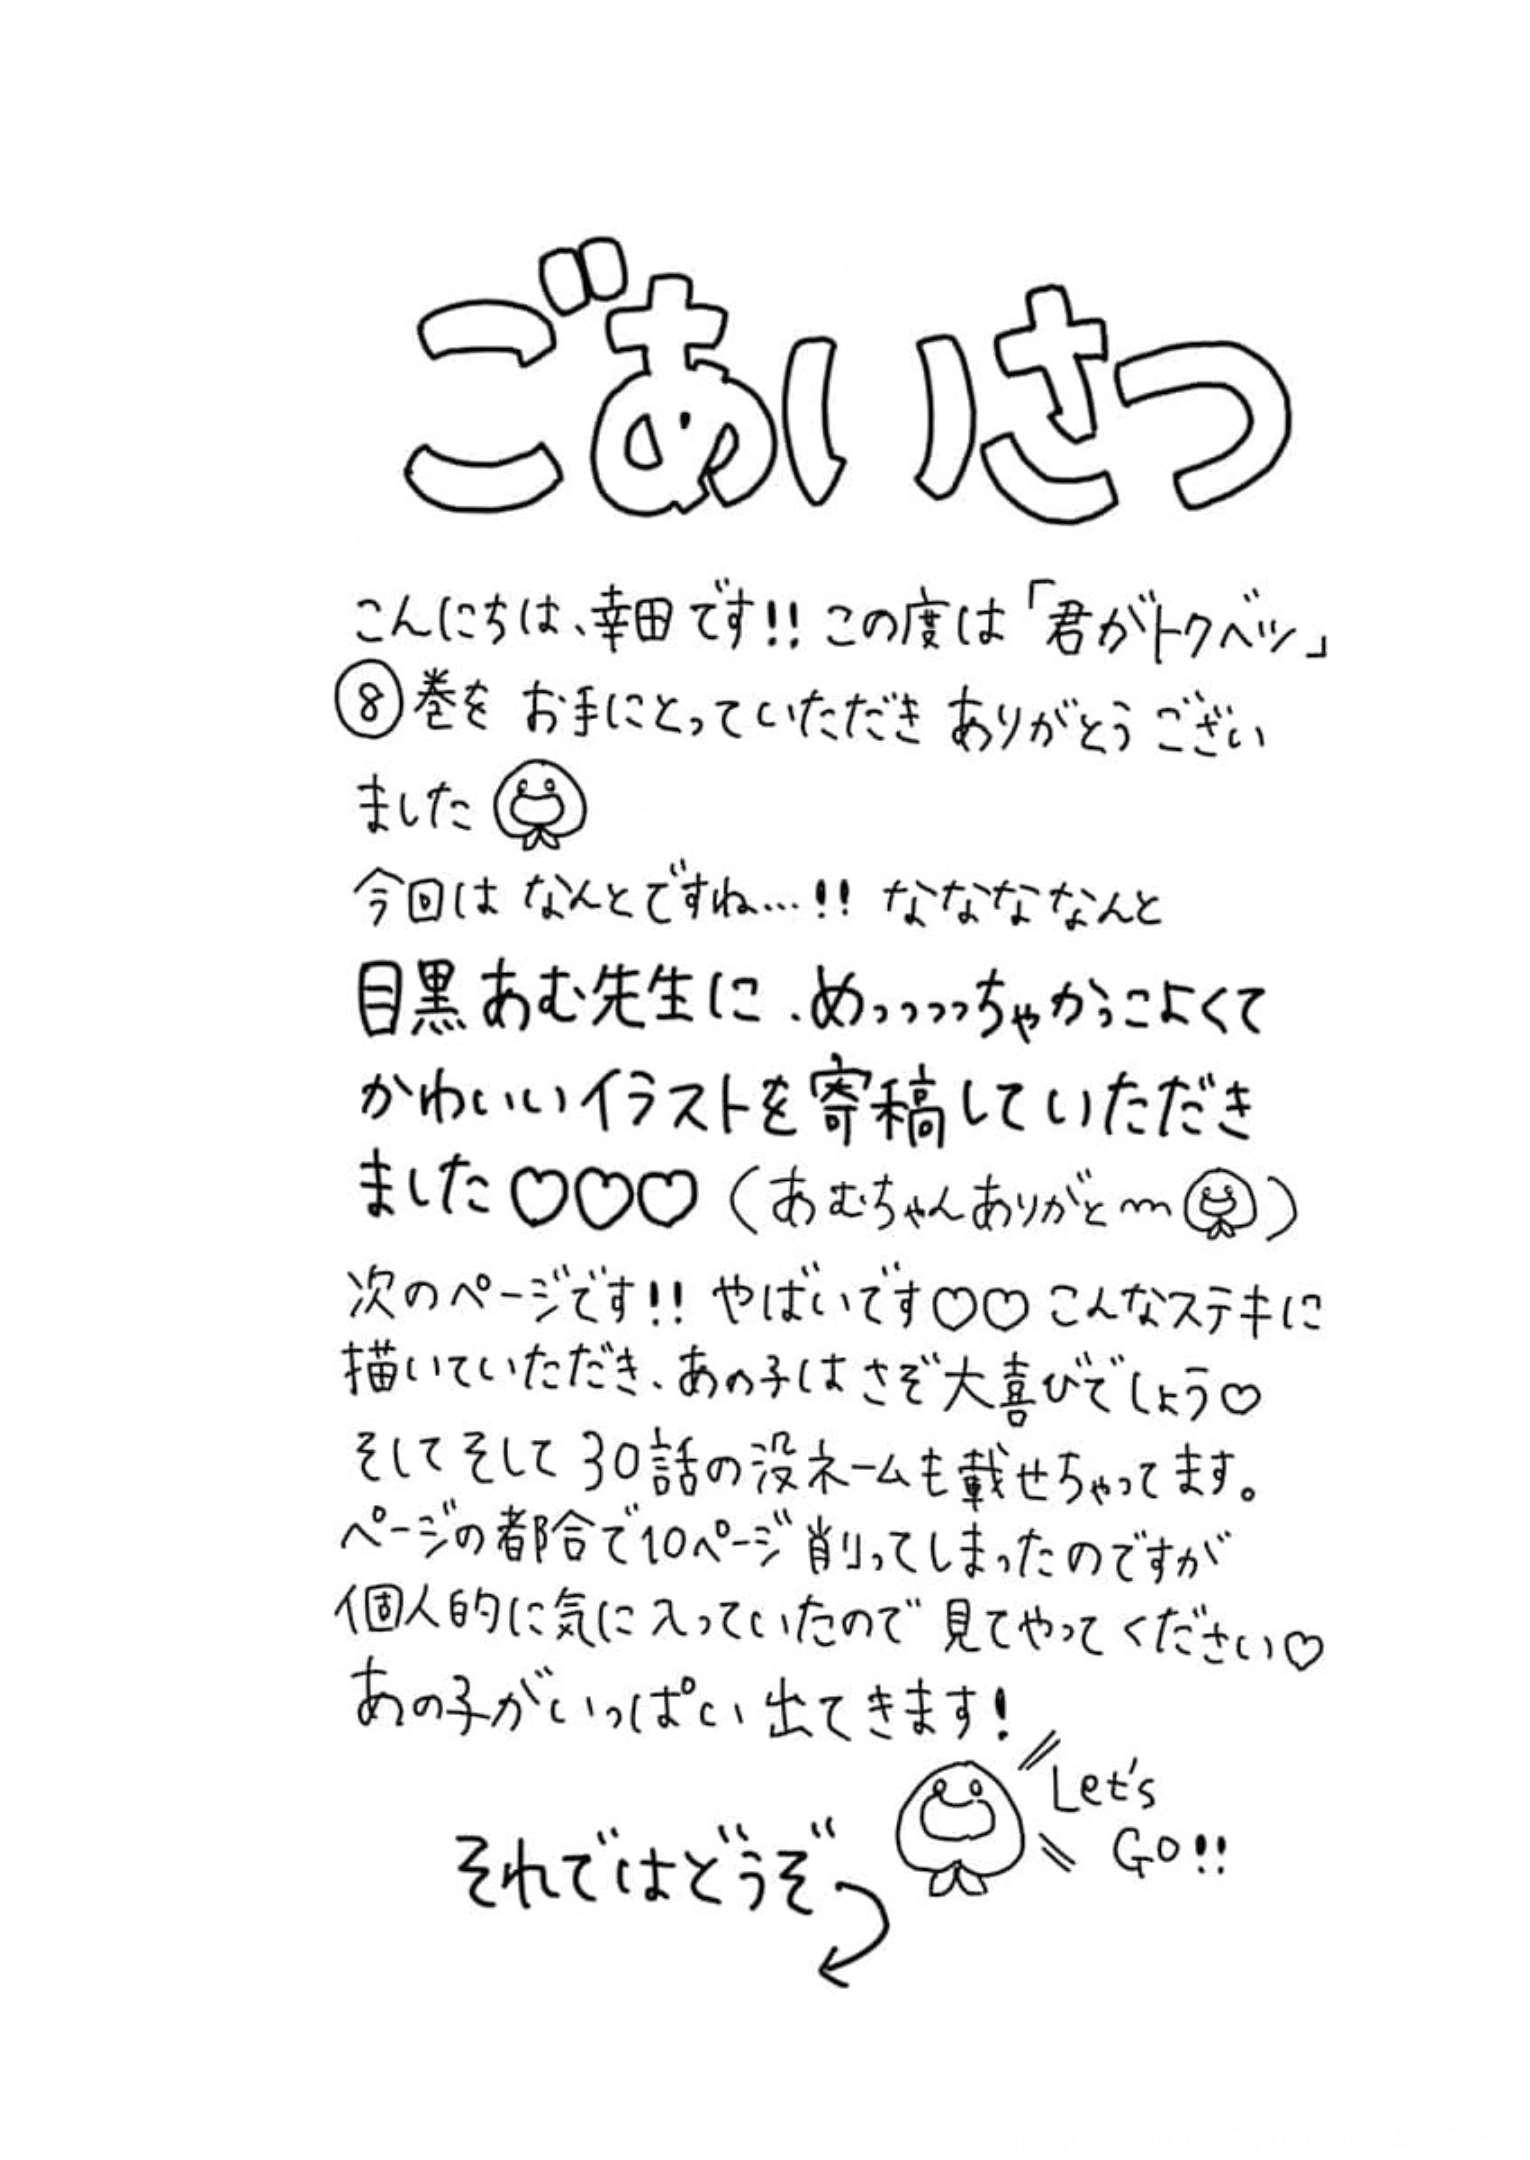 ごあいさつ
こんにちは、幸田です!! この度は「君がトクベツ」
⑧巻を お手にとっていただき ありがとう ござい
ました
今回は なんとですね…!! なななななんと
目黒あむ先生に、めっっっっちゃかっこよくて
かわいいイラストを寄稿していただき
ました♡♡♡ (あむちゃんありがと〜 )
次のページです!! やばいです♡♡ こんなステキに
描いていただき、あの子はさぞ大喜びでしょう♡
そしてそして 30話の没ネームも載せちゃってます。
ページの都合で10ページ削ってしまったのですが
個人的に気に入っていたので 見てやってください♡
あの子がいっぱい出てきます!
Let's
Go!!
それではどうぞ